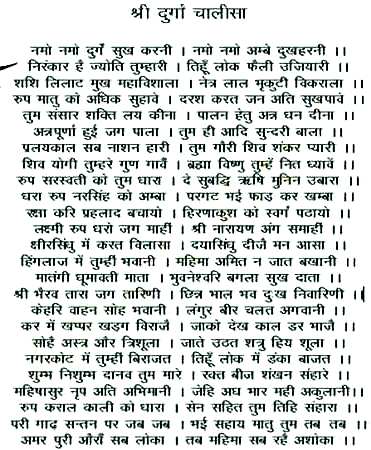 श्री दुर्गा चालीसा
नमो नमो दुर्गे सुख करनी । नमो नमो अम्बे दुखहरनी ।।
निरंकार है ज्योति तुम्हारी । तिहूँ लोक फैली उजियारी ।।
शशि लिलाट मुख महाविशाला । नेत्र लाल भृकुटी विकराला ।।
रुप मातु को अधिक सुहावे । दरश करत जन अति सुखपावे ।।
तुम संसार शक्ति लय कीना । पालन हेतु अन्न धन दीना ।।
अन्नपूर्णा हुई जग पाला । तुम ही आदि सुन्दरी बाला ।।
प्रलयकाल सब नाशन हारी । तुम गौरी शिव शंकर प्यारी ।।
शिव योगी तुम्हरे गुण गावें । बह्मा विष्णु तुम्हें नित ध्यावें ।।
रुप सरस्वती को तुम धारा । दे सुबद्धि ऋषि मुनिन उबारा ।।
धरा रुप नरसिंह को अम्बा । परगट भई फाड़ कर खम्बा ।।
रक्षा करि प्रहलाद बचायो । हिरणाकुश को स्वर्ग पठायो ।।
लक्ष्मी रुप धरो जग माहीं । श्री नारायण अंग समाहीं ।।
क्षीरसिंधु में करत विलासा । दयासिंधु दीजै मन आसा ।।
हिंगलाज में तुम्हीं भवानी । महिमा अमित न जात बखानी ।।
मातंगी घूमावती माता । भुवनेश्वरि बगला सुख दाता ।।
श्री भैरव तारा जग तारिणी । छिन्न भाल भव दुःख निवारिणी ।।
केहरि वाहन सोह भवानी । लंगुर बीर चलत अगवानी ।।
कर में खप्पर खड्ग विराजै । जाको देख काल डर भाजै ।।
सोहै अस्त्र और त्रिशूला । जाते उठत शत्रु हिय शूला ।।
नगरकोट में तुम्हीं बिराजत । तिहूँ लोक में डंका बाजत ।।
शुम्भ निशुम्भ दानव तुम मारे । रक्त बीज शंखन संहारे ।।
महिषासुर नृप अति अभिमानी । जेहि अघ भार मही अकुलानी।।
रुप कराल काली को धारा । सेन सहित तुम तिहि संहारा ।।
परी गाढ़ सन्तन पर जब जब । भई सहाय मातु तुम तब तब ।।
अमर पुरी औराँ सब लोका । तब महिमा सब रहें अशोका ।।